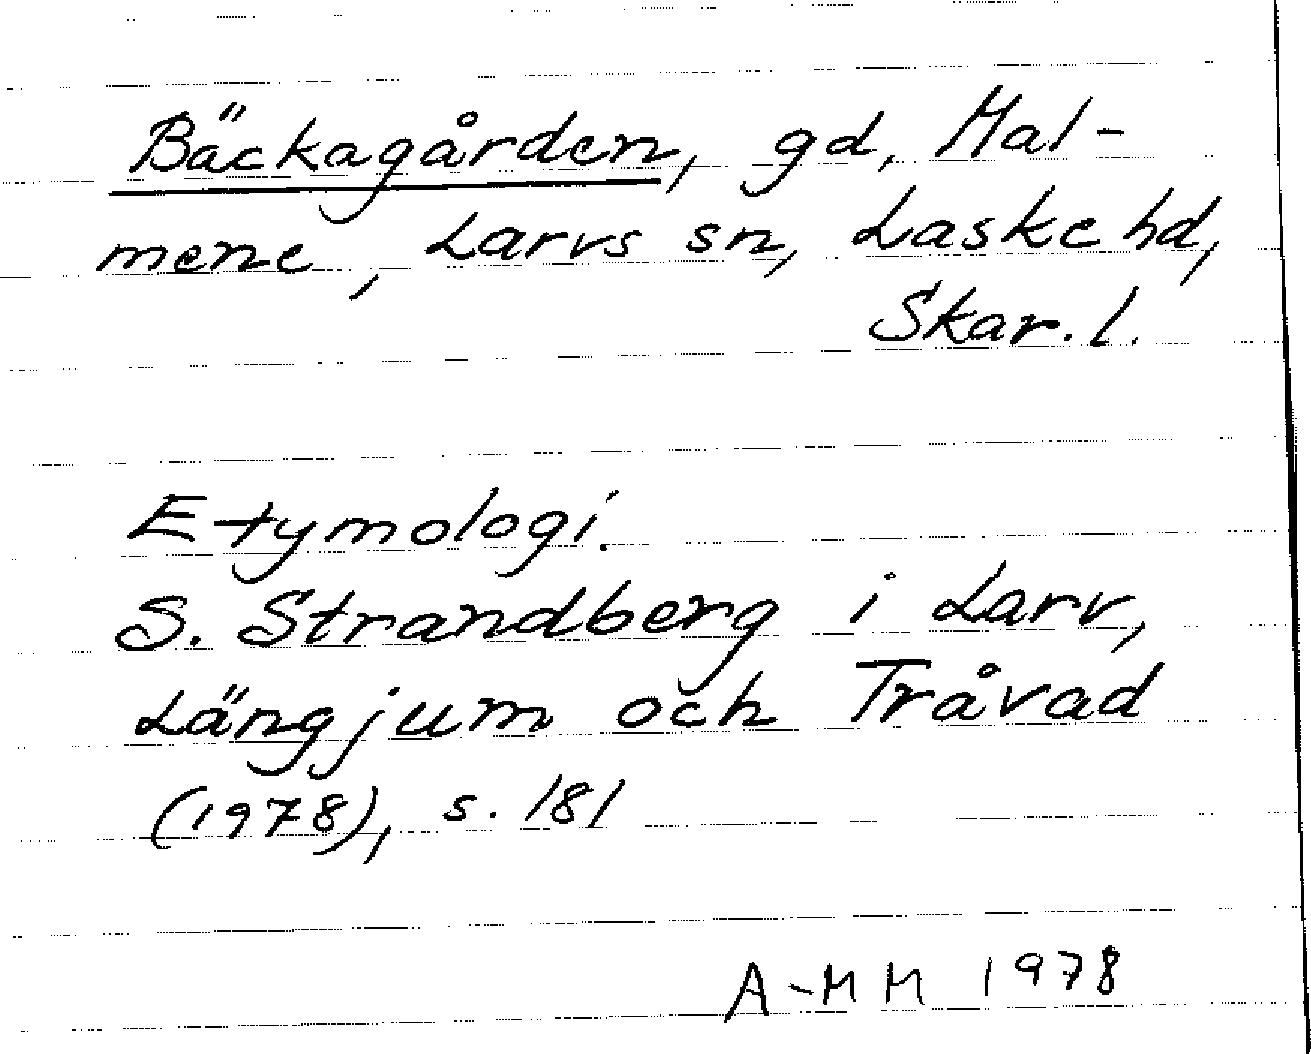 Bäckagården, gd, Mal-
mene, Larvs sn, Laske hd,
Skar. l.
Etymologi.
S. Strandberg i Larv,
Längjum och Tråvad
(1978), s. 181
A-MM 1978